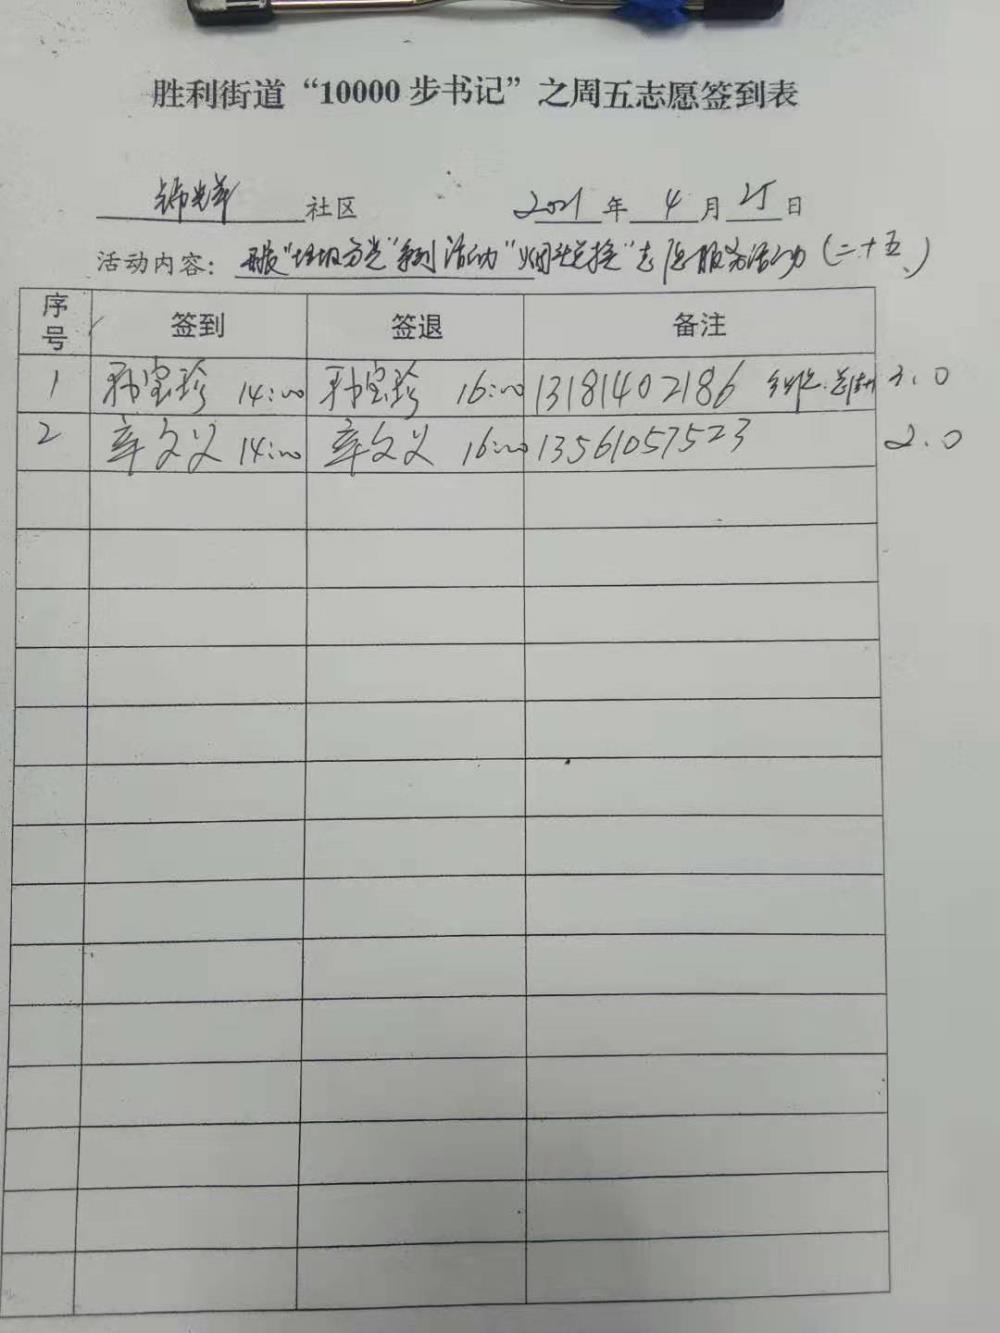 胜利街道“10000步书记”之周五志愿签到表
锦华社区 2021年4月25日
活动内容：开展“垃圾分类”系列活动“烟头兑换”志愿服务活动(二十五)
序号 签到 签退 备注
1 孙宝珍 14:00 孙宝珍 16:00 13181402186 2.0
2 辛文义 14:00 辛文义 16:00 13561057523 2.0